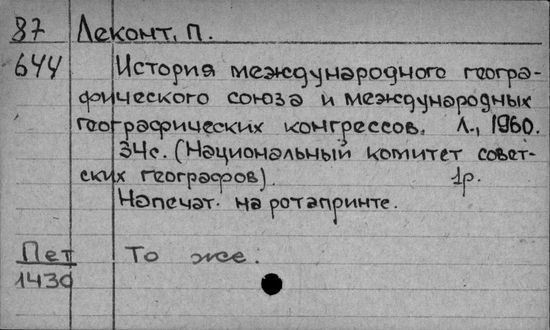 87 Леконт, П.
644 История международного геогра-
фического союза и международных
географических конгрессов. Л., 1960.
34с. (Национальный комитет совет-
ских географов). 1р.
Напечат. на ротапринте.
Пет То же.
1430